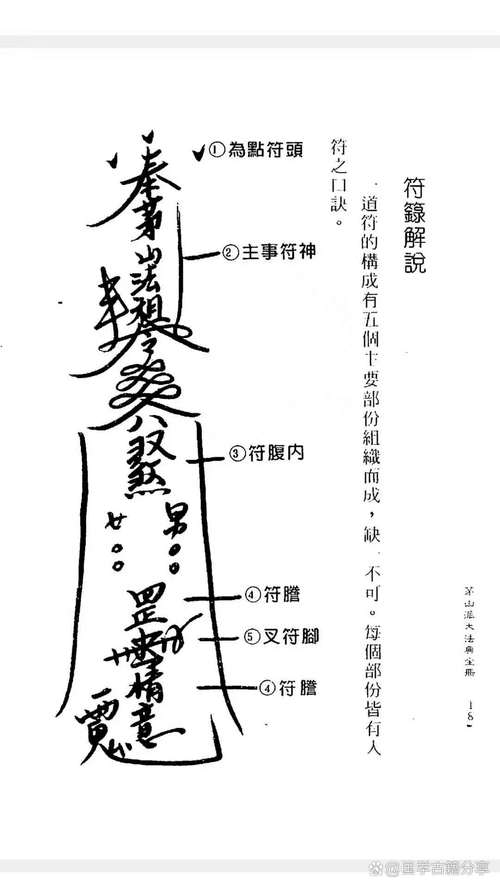 符籙解說
一道符的構成有五個主要部份組織而成，缺一不可。每個部份皆有入
符之口訣。
茅山派大法典全冊
①為點符頭
②主事符神
③符腹內
④符膽
⑤叉符腳
④符膽
奉茅山法祖
男
罡
情意
@国学古籍分享